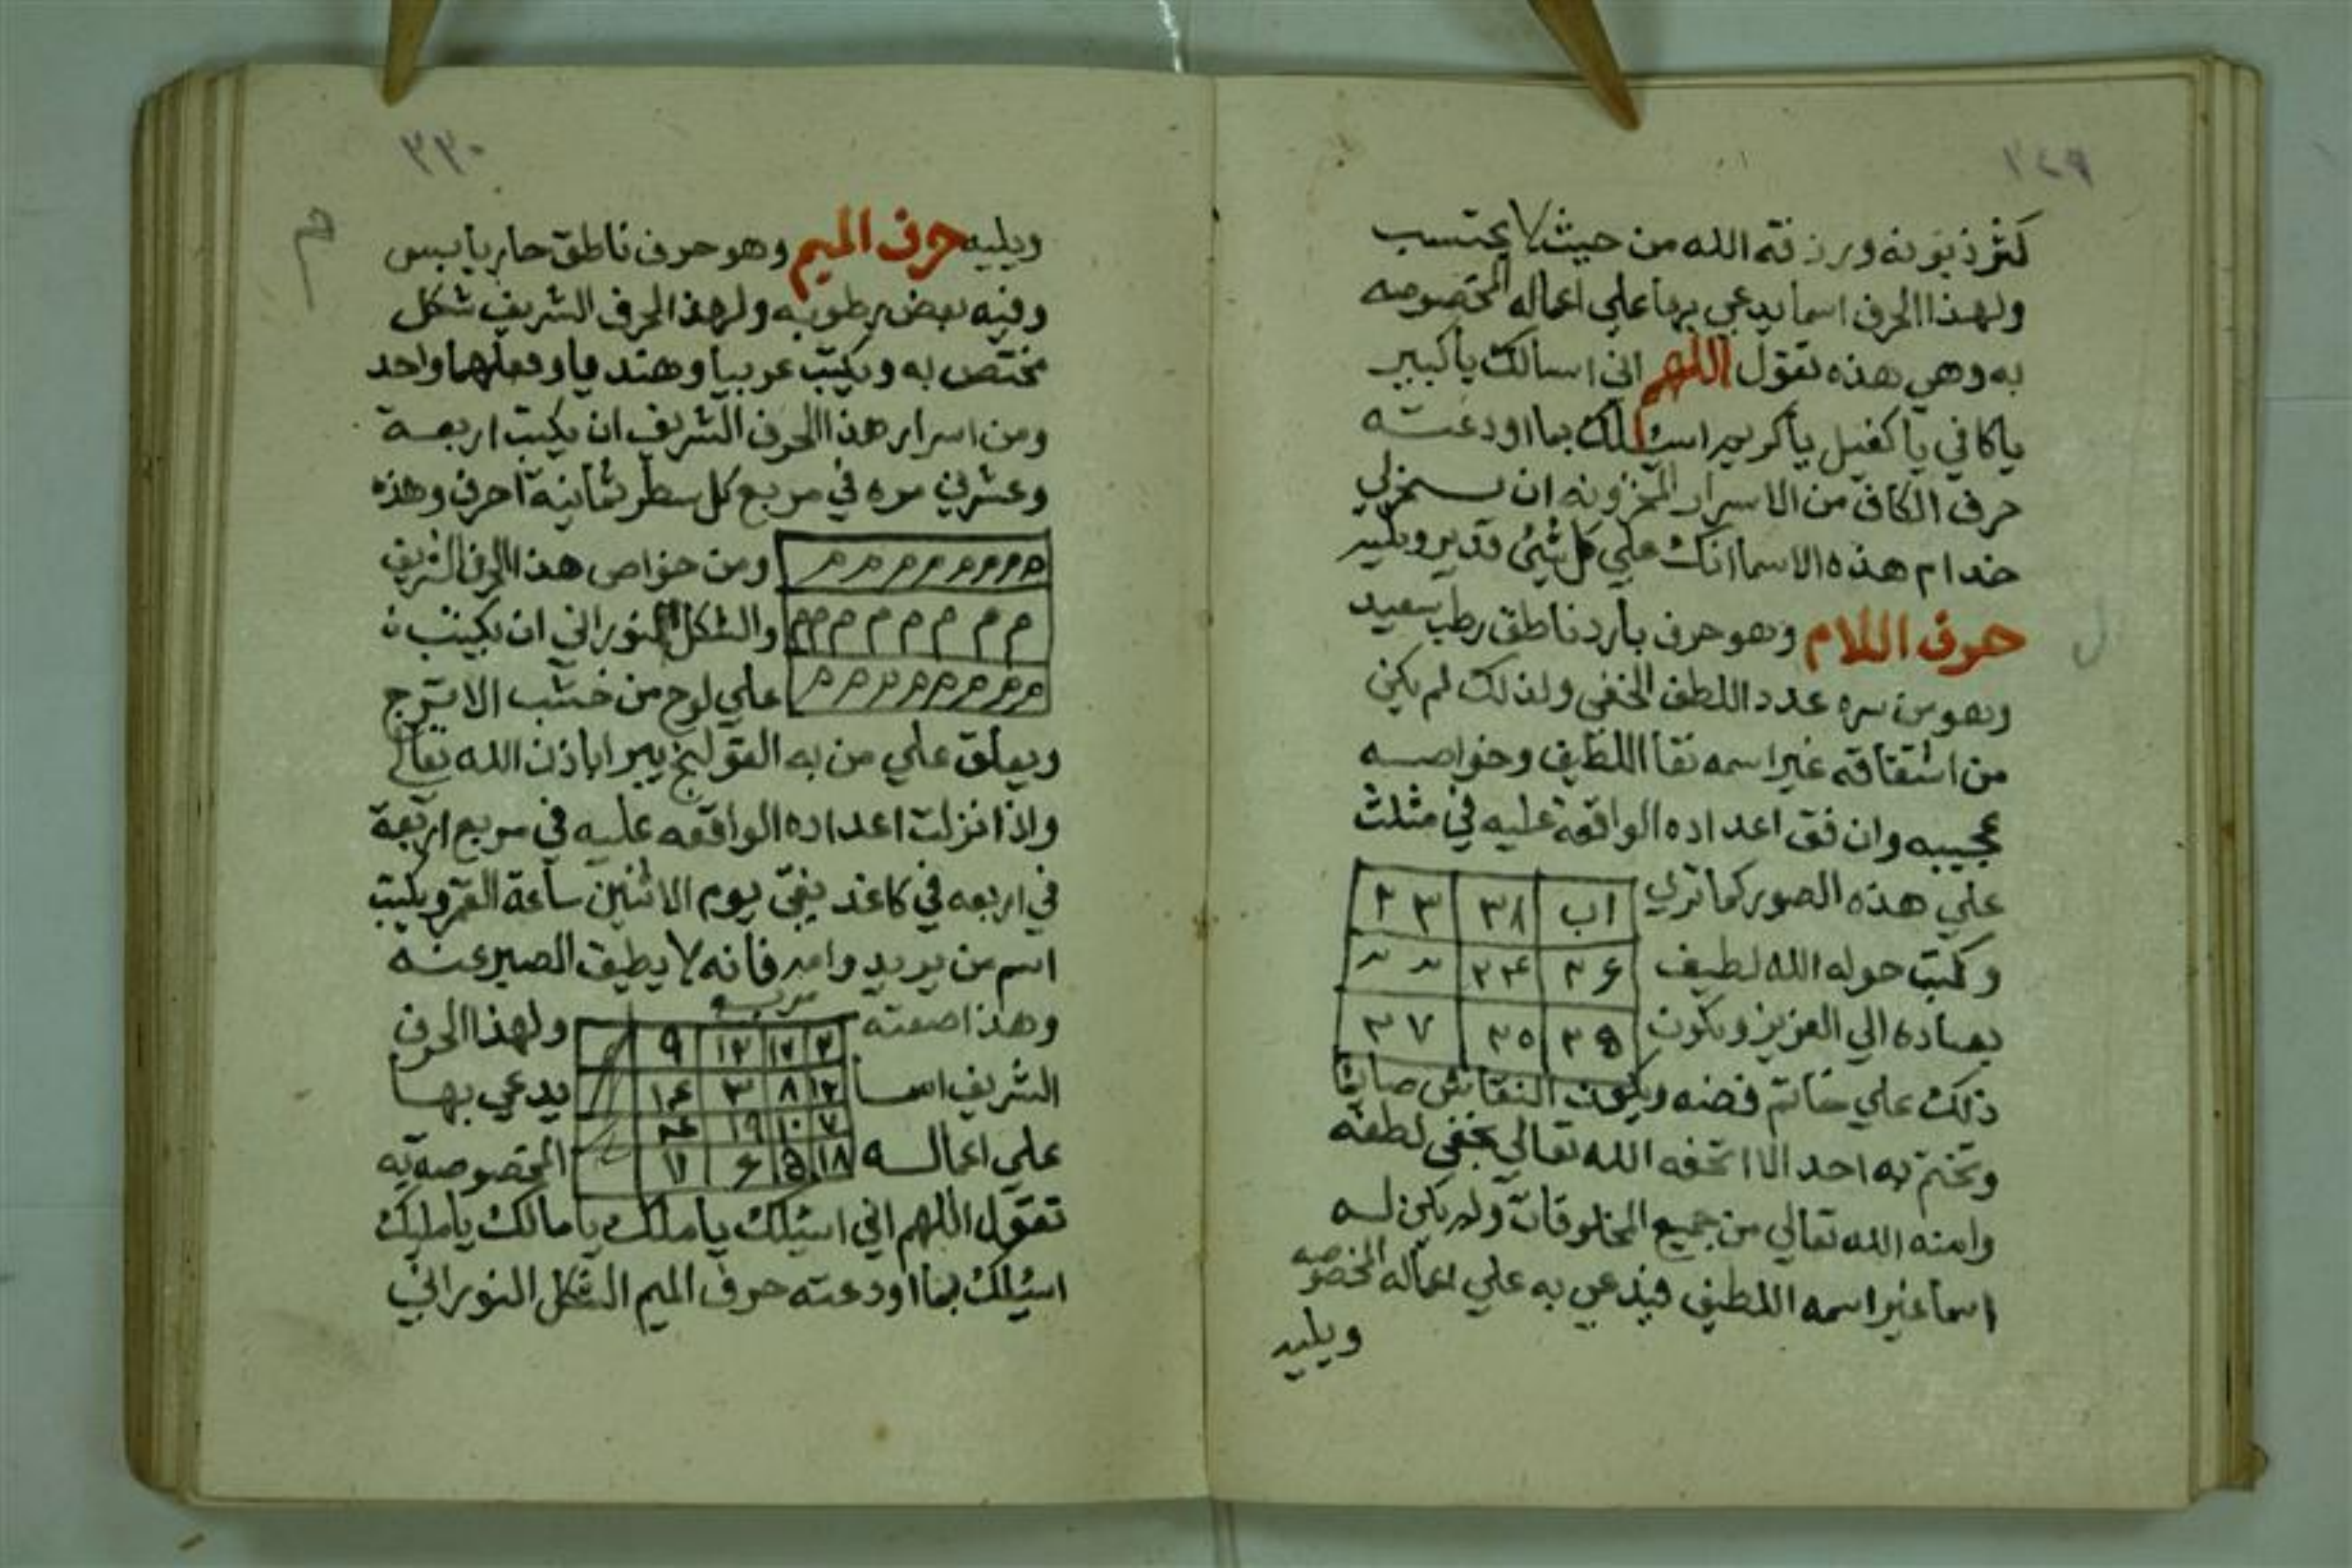 ٢٤٩
كثر ذبونه ورزقه الله من حيث لا يحتسب
ولهذا الحرف اسما يدعي بها علي اعماله المختصوصه
به وهي هذه تقول اللهم اني اسالك يا كبير
يا كافي يا كفيل يا كريم اسئلك بما اودعته
حرف الكاف من الاسرار المخزونه ان تسخر لي
خدام هذه الاسما انك علي كل شيئ قدير ويليه
حرف اللام وهو حرف بارد ناطق رطب سعيد
ل
وهو من سره عدد اللطف الخفي ولذلك لم يكن
من اشتقاقه غير اسمه تعا اللطيف وخواصه
عجيبه وان فق اعداده الواقعة عليه في مثلث
علي هذه الصور كما تري
اب ٣٨ ٣٣
وكتب حوله الله لطيف
٣٦ ٣٤
بعباده الي العزيز ويكون
٣٩ ٣٥ ٣٧
ذلك علي خاتم فضه ويكون النقاش صايما
وتختم به احد الا اتحفه الله تعالي بخفي لطفه
وامنه الله تعالي من جميع المخلوقات ولم يكن له
اسما غير اسمه اللطيف فيدعي به علي اعماله المخصوصه
ويليه
٢٣٠
ويليه حرف الميم وهو حرف ناطق حار يابس
م
وفيه بعض رطوبه ولهذ الحرف الشريف شكل
مختص به ويكتب عربيا وهنديا وفعلهما واحد
ومن اسرار هذا الحرف الشريف ان يكتب اربعة
وعشرين مره في مربع كل سطر ثمانية احرف وهذه
م م م م م م م م
ومن خواص هذا الحرف الشريف
م م م م م م م م
والشكل النوراني ان يكتب
م م م م م م م م
علي لوح من خشب الاترج
ويعلق علي من به القولنج يبرا باذن الله تعالي
واذا نزلت اعداده الواقعه عليه في مربع اربعة
في اربعه في كاغد نقي يوم الاثنين ساعة القمر ويكتب
اسم من يريد وامه فانه لا يطيق الصبر عنه
وهذا صفته
ولهذا الحرف
٢ ١٧ ١٢ ٩
الشريف اسما
يدعي بها
١٣ ٨ ٣ ١٦
٧ ١٠ ١٩ ٤
علي اعماله
المخصوصه به
١٨ ٥ ٦ ١١
تقول اللهم اني اسئلك يا ملك يا مالك يا مليك
اسئلك بما اودعته حرف الميم الشكل النوراني